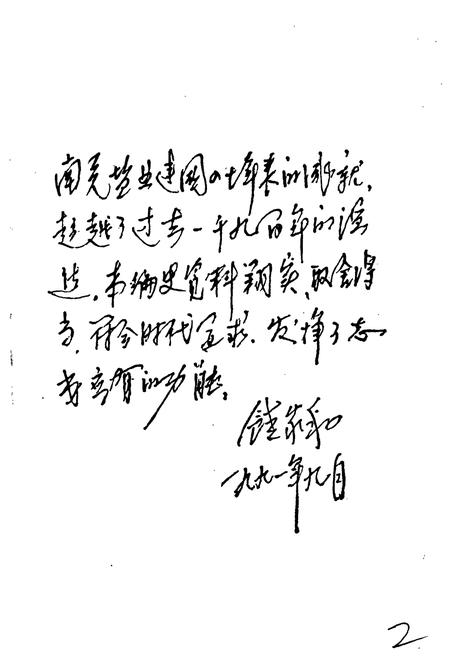 南充盐业建国四十年来的成就,
超越了过去一千九百年的演
进。本编史资料翔实、取舍得
当,符合时代要求,发挥了志
书应有的功能。
钟家和
一九九一年九月
2